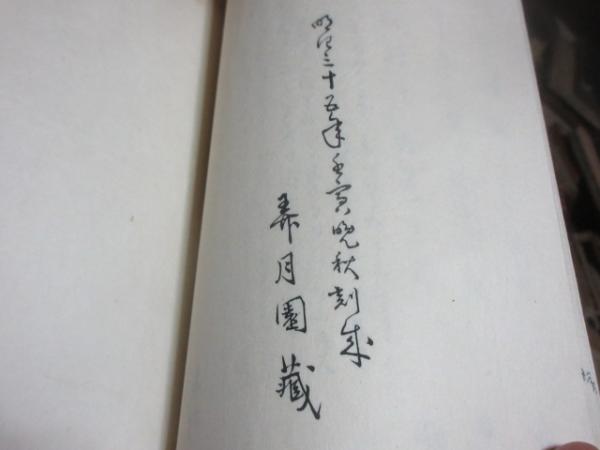 明治三十五年壬寅晩秋刻成
弄月園藏